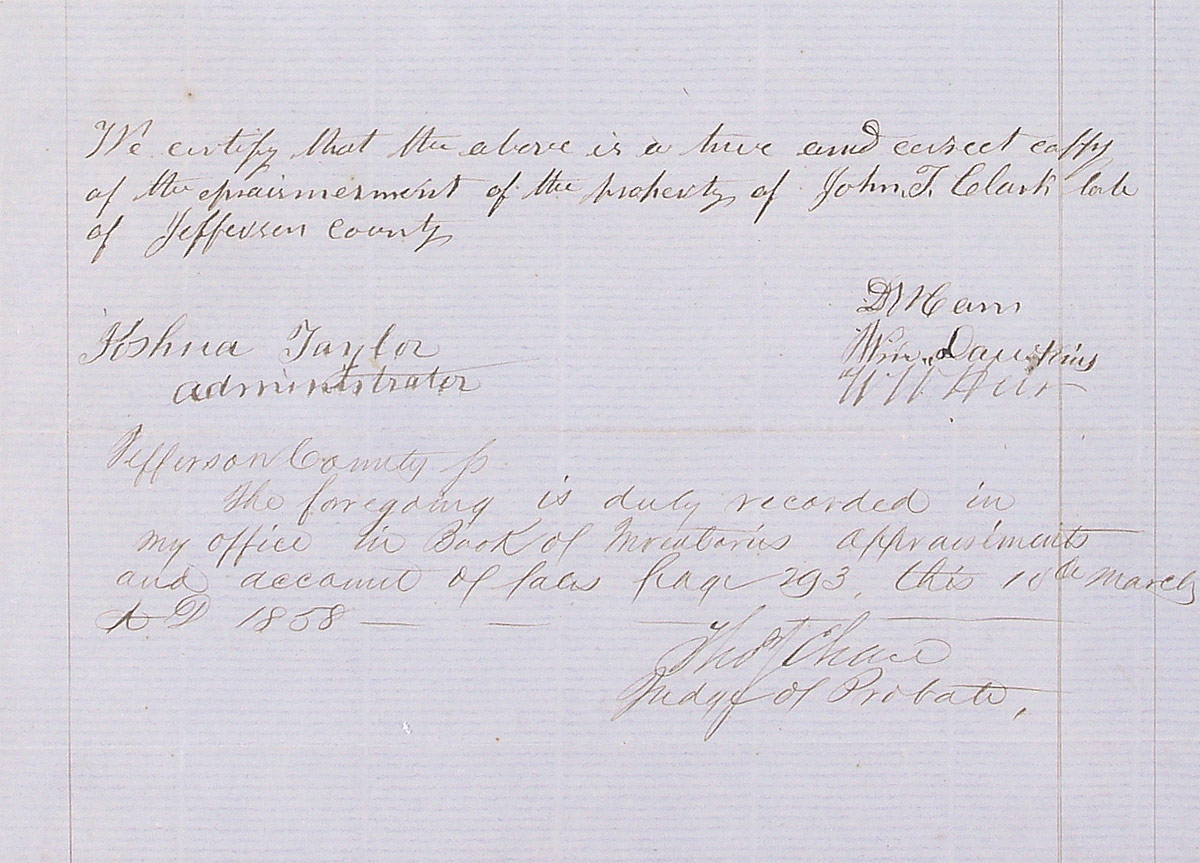 We certify that the above is a true and corect coppy
of the apraismerment of the property of John T. Clark late
of Jefferson County
D W Ham
Joshua Taylor
Wm. Dawkins
administrator
W W
Jefferson County ss
The foregoing is duly recorded in
my office in Book of Inventories appraisements
and account of sales page 293. this 18th March
A D 1858
Thos J Chace
Judge of Probate,